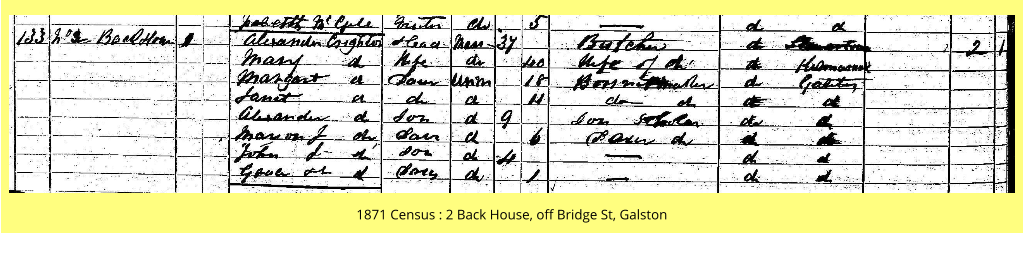 Mc 5 d d
133 No 2 Back House 1 Alexander Creighton Head Marr 37 Butcher d 2 1
Mary d Wife do 40 Wife of do d Kilmarnock
Margaret d Daur Unm 18 Bonnet maker d Galston
Janet d do d do d d d
Alexander d Son d 9 Son Scholar do d
Marion J do Daur d 6 Daur do d do
John J do Son d 4 — d d
d Daur do 1 — d d
1871 Census : 2 Back House, off Bridge St, Galston